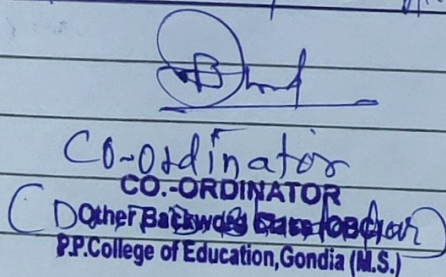 Co-ordinator
CO.-ORDINATOR
Other Backword Class (OBC)
P.P.College of Education,Gondia (M.S.)